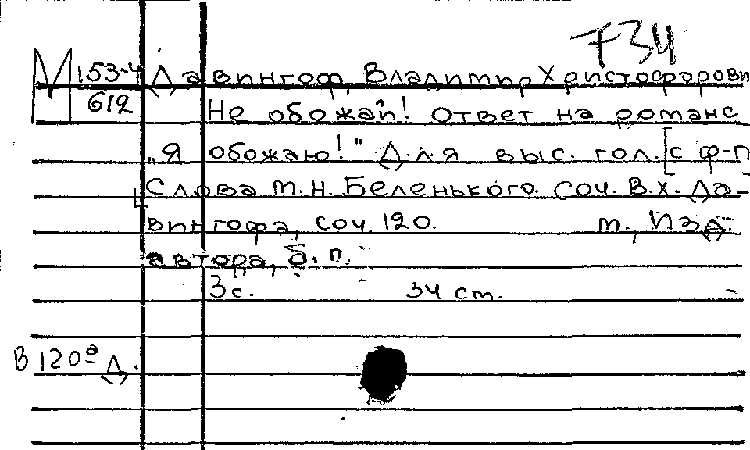 734
М 153-4 Давингоф, Владимир Христофорови
612 Не обожай! Ответ на романс
„Я обожаю!" Для выс. гол. [с ф-п
Слова М.Н. Беленького. Соч. В.Х. Да-
вингофа, соч. 120. М., Изд.
автора, б. г.
3 с. 34 см.
В 120ª Д.